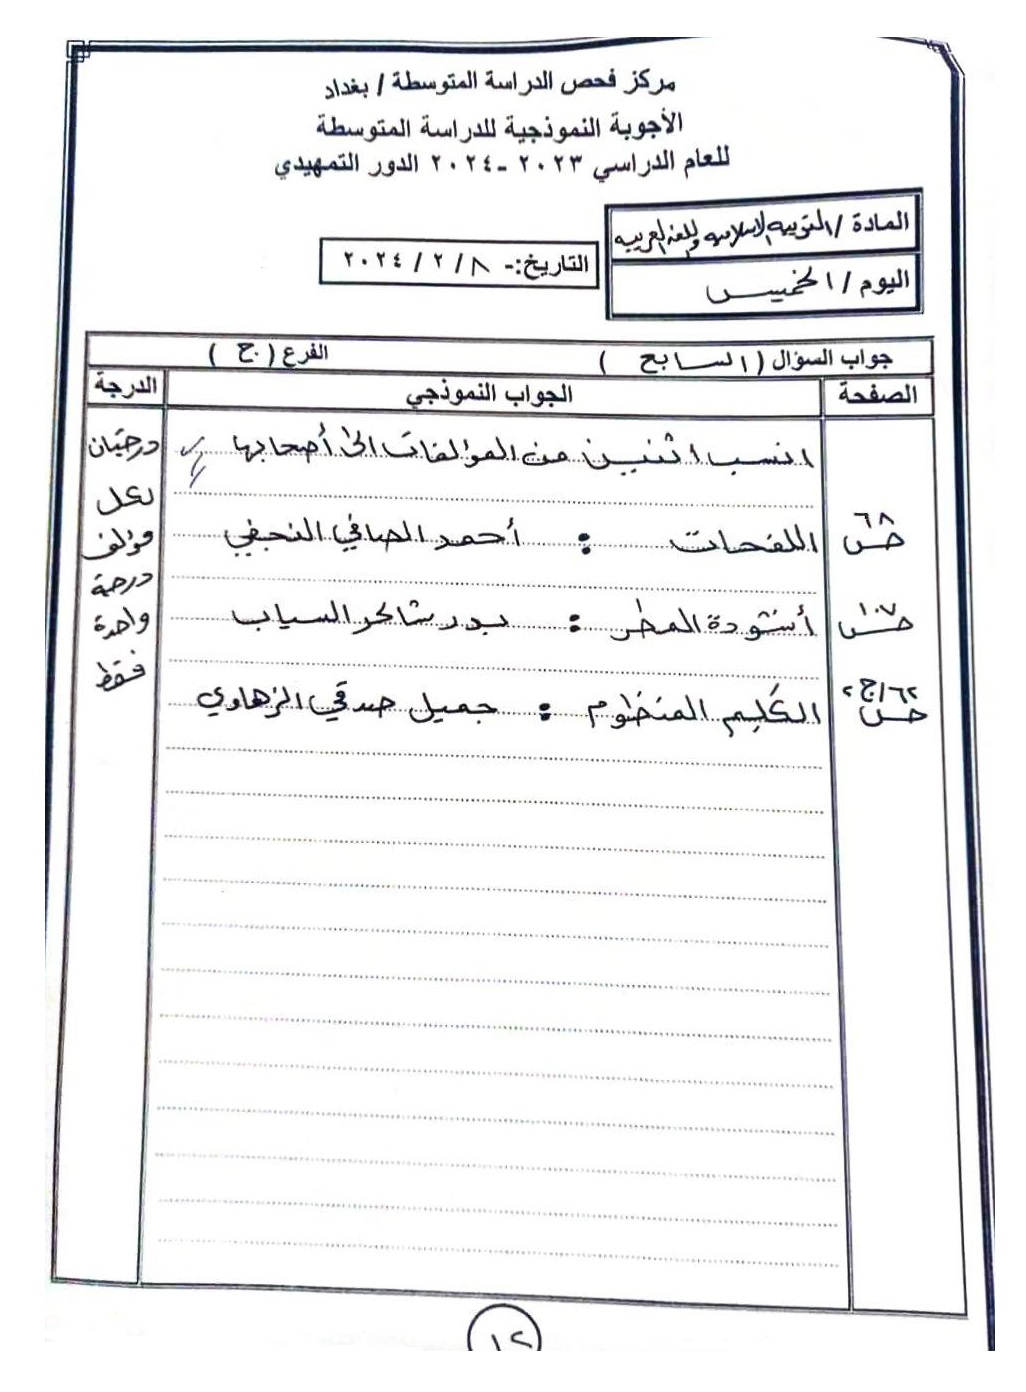 مركز فحص الدراسة المتوسطة / بغداد
الأجوبة النموذجية للدراسة المتوسطة
للعام الدراسي ٢٠٢٣ -٢٠٢٤ الدور التمهيدي
المادة / التربية الاسلامية واللغة العربية
اليوم / الخميس
التاريخ:- ٨ / ٢ / ٢٠٢٤
جواب السؤال ( السابع ) الفرع ( ج )
الصفحة الجواب النموذجي الدرجة
انسب اثنين من المؤلفات الى أصحابها درجتان
لكل
ص ٦٨ اللفحات : أحمد الصافي النجفي مؤلف
درجة
ص ١٠٧ أنشودة المطر : بدر شاكر السياب واحدة
فقط
ص ٦٢/ج٢ الكَلِم المنظوم : جميل صدقي الزهاوي
١٢